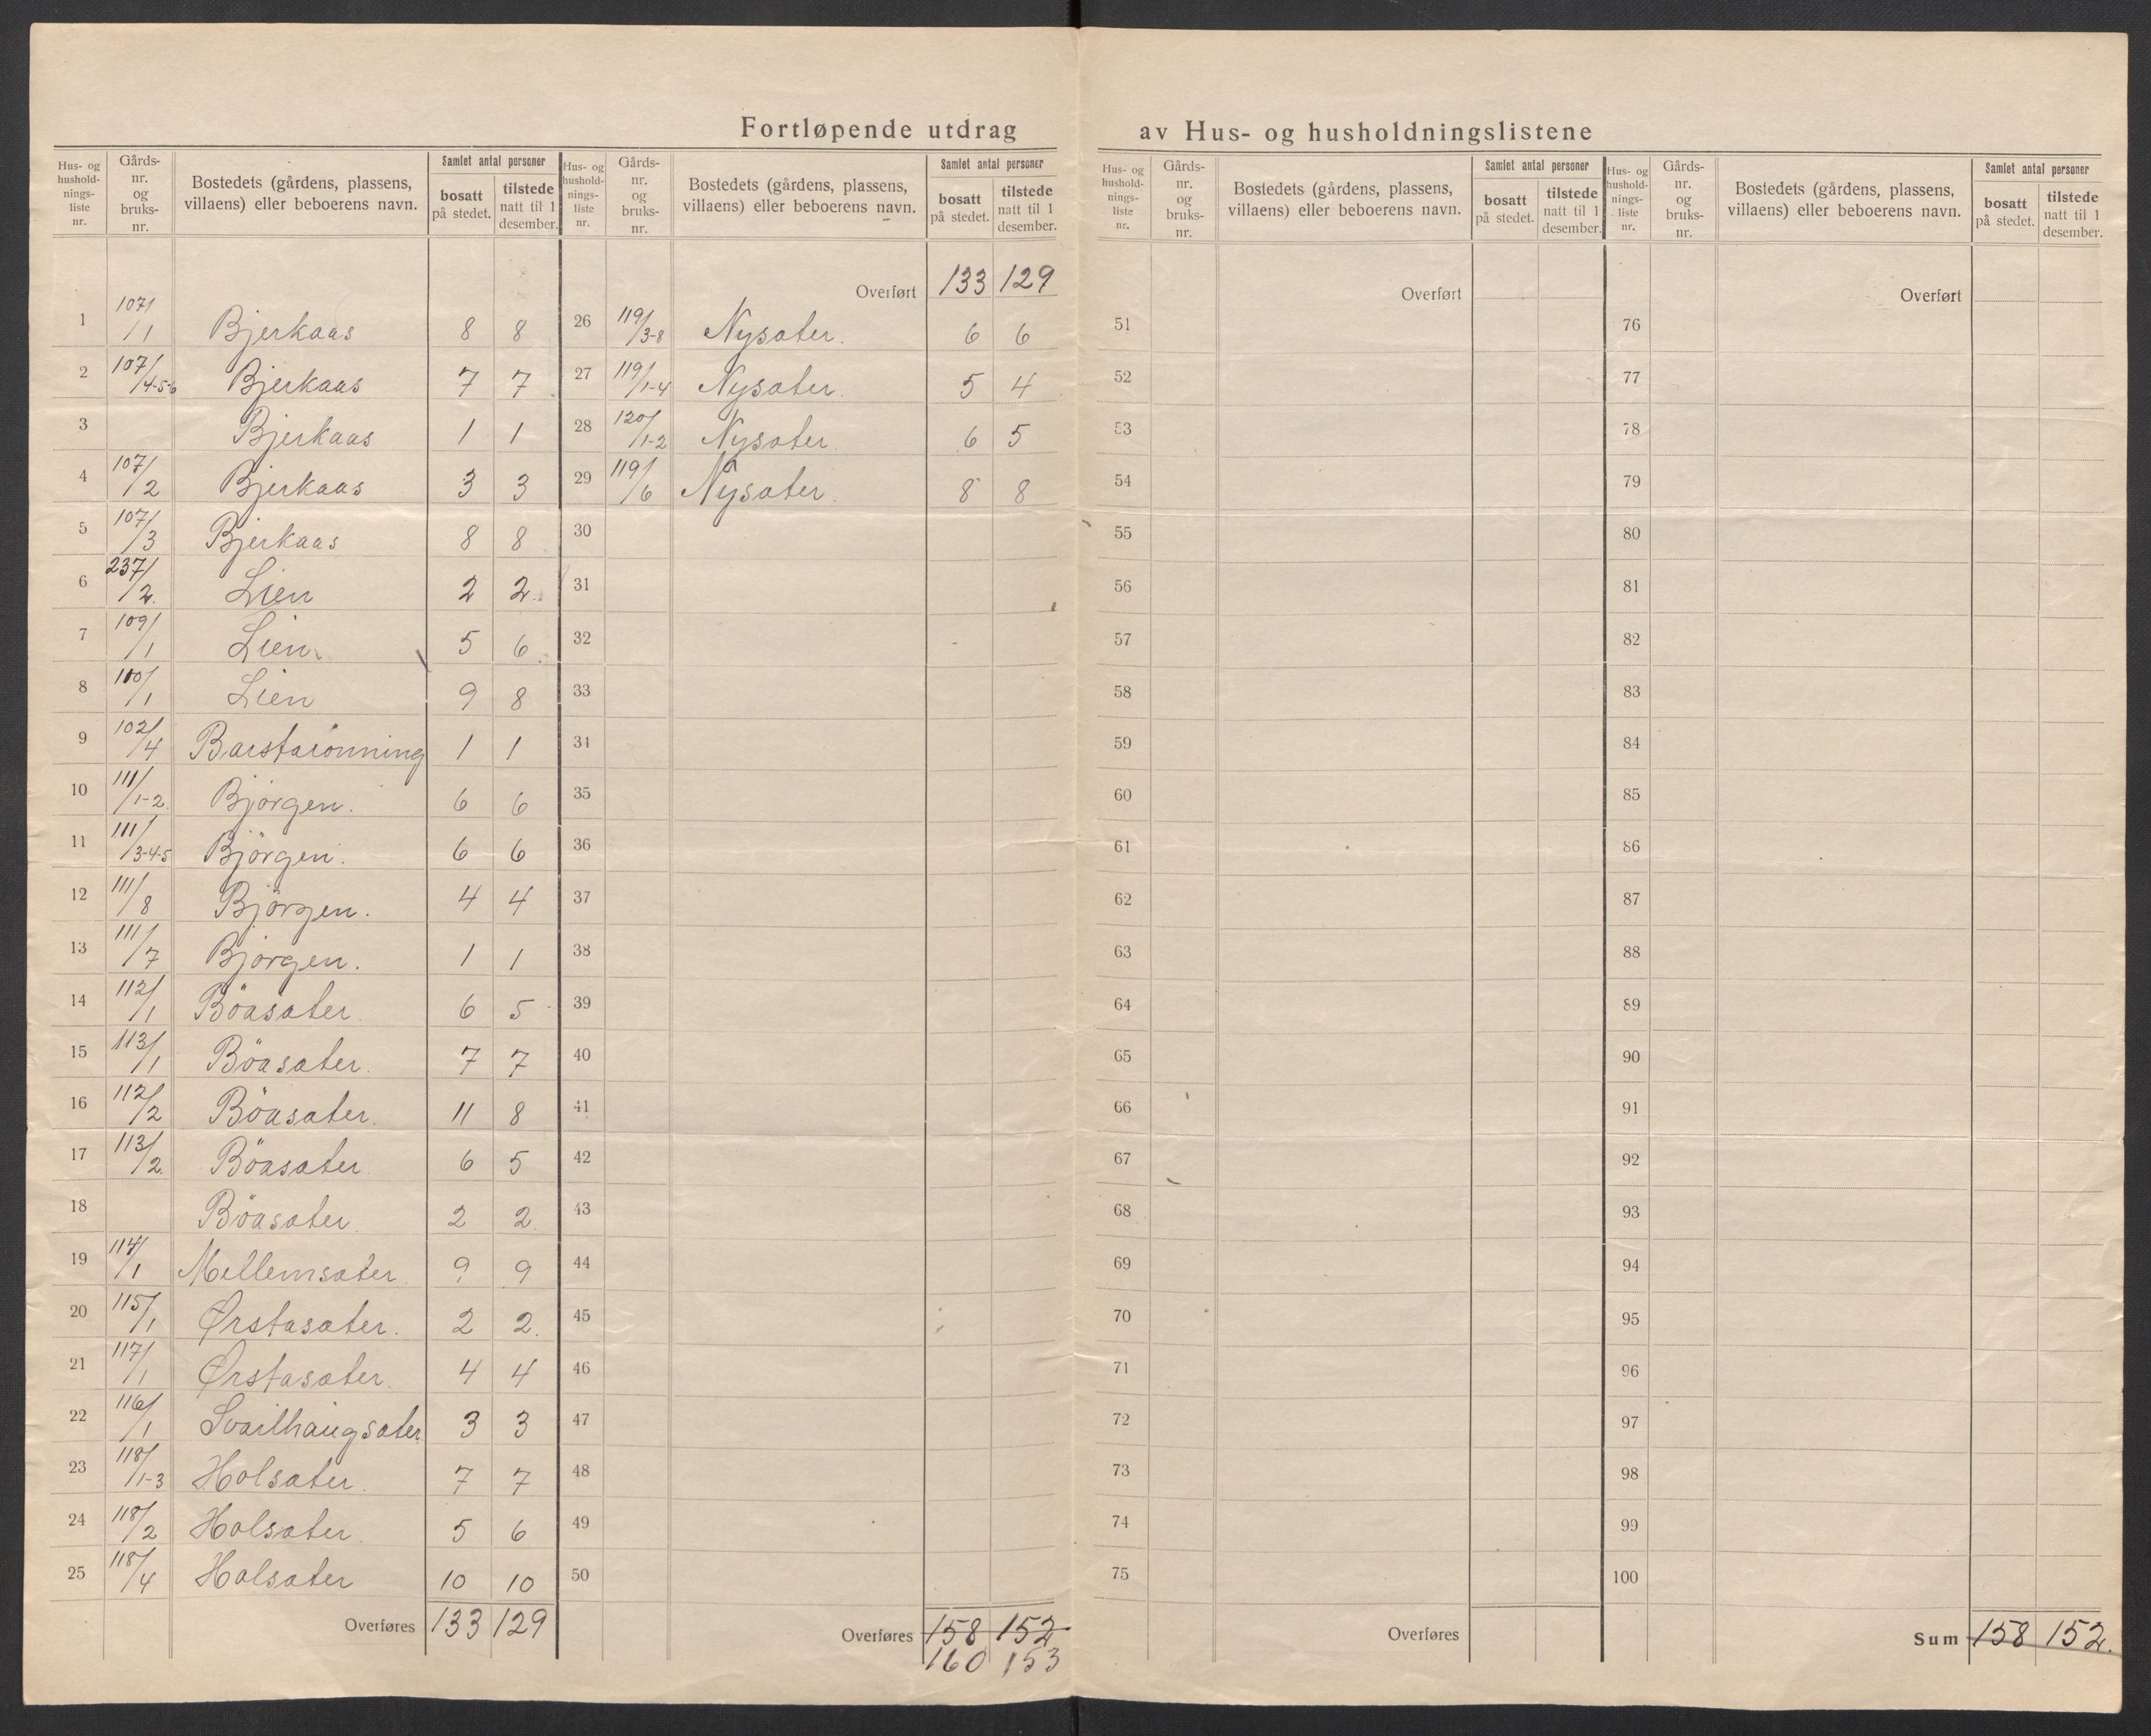 Fortløpende utdrag av Hus- og husholdningslistene
Hus- og hushold-nings-liste nr. | Gårds-nr. og bruks-nr. | Bostedets (gårdens, plassens, villaens) eller beboerens navn. | Samlet antal personer | bosatt på stedet. | tilstede natt til 1 desember.
1 107/1 Bjerkaas 8 8
2 107/4-5-6 Bjerkaas 7 7
3 Bjerkaas 1 1
4 107/2 Bjerkaas 3 3
5 107/3 Bjerkaas 8 8
6 237/2. Lien 2 2.
7 109/1 Lien 5 6
8 100/1 Lien 9 8
9 102/4 Barstarönning 1 1
10 111/1-2. Björgen. 6 6
11 111/3-4-5 Björgen. 6 6
12 111/8 Björgen. 4 4
13 111/7 Björgen. 1 1
14 112/1 Böasæter. 6 5
15 113/1 Böasæter. 7 7
16 112/2 Böasæter. 11 8
17 113/2 Böasæter 6 5
18 Böasæter. 2 2
19 114/1 Mellemsæter. 9 9
20 115/1 Ørstasæter. 2 2.
21 117/1 Ørstasæter. 4 4
22 116/1 Svarlhaugsæter 3 3
23 118/1-3 Holsæter. 7 7
24 118/2 Holsæter. 5 6
25 118/4 Holsæter 10 10
Overføres 133 129
Hus- og hushold-nings-liste nr. | Gårds-nr. og bruks-nr. | Bostedets (gårdens, plassens, villaens) eller beboerens navn. | Samlet antal personer | bosatt på stedet. | tilstede natt til 1 desember.
Overført 133 129
26 119/3-8 Nysæter. 6 6
27 119/1-4 Nysæter. 5 4
28 120/1-2 Nysæter 6 5
29 119/6 Nysæter. 8 8
30
31
32
33
34
35
36
37
38
39
40
41
42
43
44
45
46
47
48
49
50
Overføres 158 152
160 153
Hus- og hushold-nings-liste nr. | Gårds-nr. og bruks-nr. | Bostedets (gårdens, plassens, villaens) eller beboerens navn. | Samlet antal personer | bosatt på stedet. | tilstede natt til 1 desember.
Overført
51
52
53
54
55
56
57
58
59
60
61
62
63
64
65
66
67
68
69
70
71
72
73
74
75
Overføres
Hus- og hushold-nings-liste nr. | Gårds-nr. og bruks-nr. | Bostedets (gårdens, plassens, villaens) eller beboerens navn. | Samlet antal personer | bosatt på stedet. | tilstede natt til 1 desember.
Overført
76
77
78
79
80
81
82
83
84
85
86
87
88
89
90
91
92
93
94
95
96
97
98
99
100
Sum 158 152.